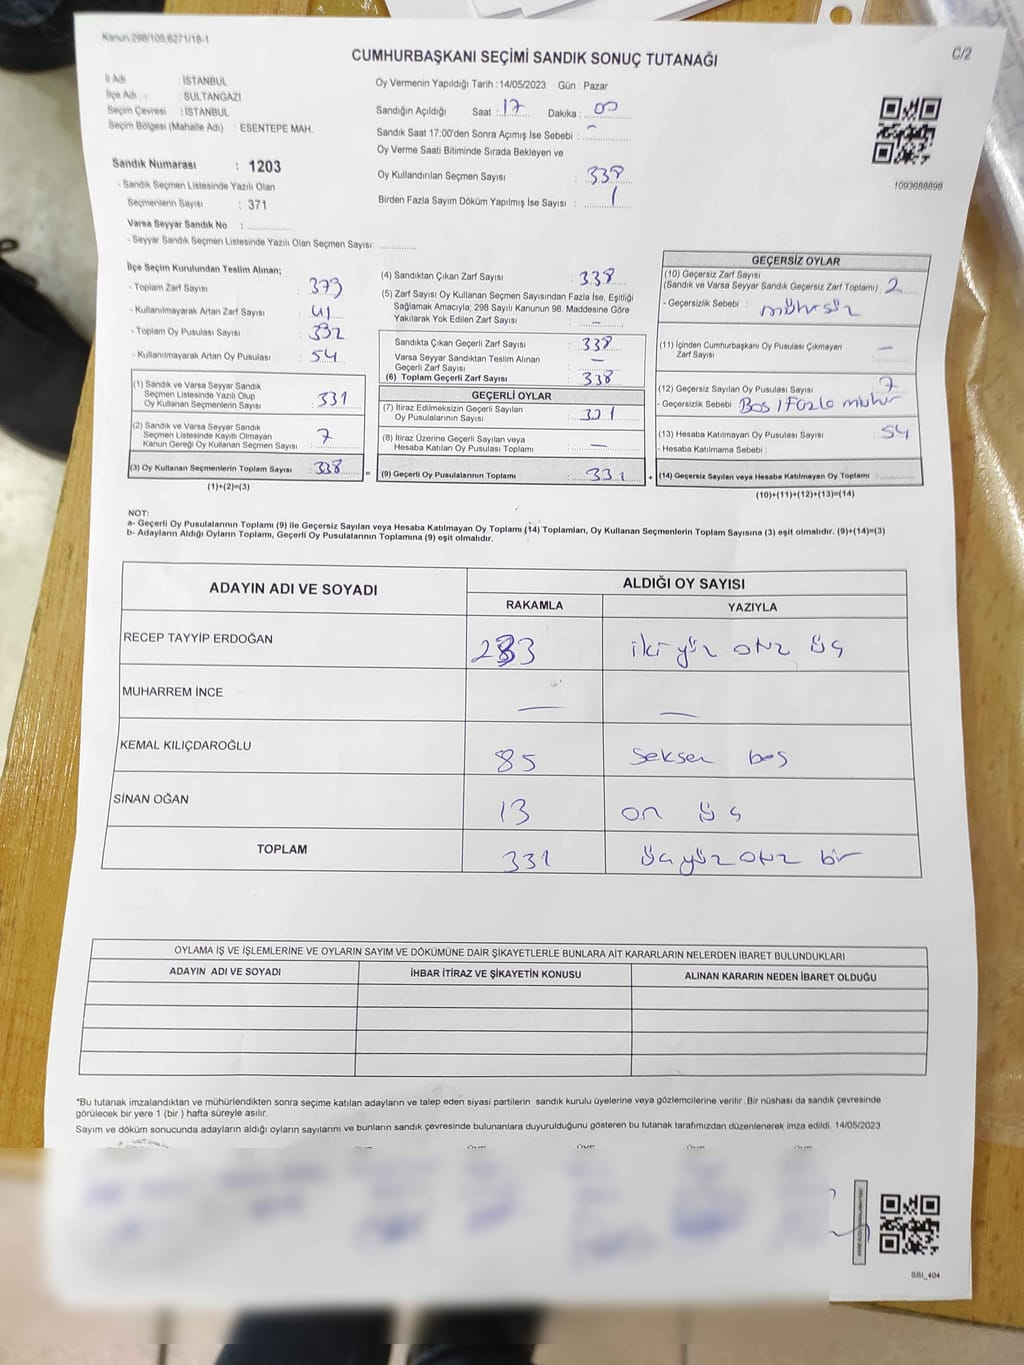 Kanun:298/105,6271/18-1
C/2
CUMHURBAŞKANI SEÇİMİ SANDIK SONUÇ TUTANAĞI
İl Adı : İSTANBUL
İlçe Adı : SULTANGAZİ
Seçim Çevresi : İSTANBUL
Seçim Bölgesi (Mahalle Adı) : ESENTEPE MAH.
Sandık Numarası : 1203
- Sandık Seçmen Listesinde Yazılı Olan
Seçmenlerin Sayısı : 371
Varsa Seyyar Sandık No :
- Seyyar Sandık Seçmen Listesinde Yazılı Olan Seçmen Sayısı:
Oy Vermenin Yapıldığı Tarih : 14/05/2023 Gün : Pazar
Sandığın Açıldığı Saat : 17 Dakika : 00
Sandık Saat 17:00'den Sonra Açımış İse Sebebi : -
Oy Verme Saati Bitiminde Sırada Bekleyen ve
Oy Kullandırılan Seçmen Sayısı : 338
Birden Fazla Sayım Döküm Yapılmış İse Sayısı : 1
1093688898
İlçe Seçim Kurulundan Teslim Alınan;
- Toplam Zarf Sayısı : 379
- Kullanılmayarak Artan Zarf Sayısı : 41
- Toplam Oy Pusulası Sayısı : 392
- Kullanılmayarak Artan Oy Pusulası : 54
(1) Sandık ve Varsa Seyyar Sandık
Seçmen Listesinde Yazılı Olup
Oy Kullanan Seçmenlerin Sayısı : 331
(2) Sandık ve Varsa Seyyar Sandık
Seçmen Listesinde Kayıtlı Olmayan
Kanun Gereği Oy Kullanan Seçmen Sayısı : 7
(3) Oy Kullanan Seçmenlerin Toplam Sayısı : 338 =
(1)+(2)=(3)
(4) Sandıktan Çıkan Zarf Sayısı : 338
(5) Zarf Sayısı Oy Kullanan Seçmen Sayısından Fazla İse, Eşitliği
Sağlamak Amacıyla; 298 Sayılı Kanunun 98. Maddesine Göre
Yakılarak Yok Edilen Zarf Sayısı : -
Sandıkta Çıkan Geçerli Zarf Sayısı : 338
Varsa Seyyar Sandıktan Teslim Alınan
Geçerli Zarf Sayısı : -
(6) Toplam Geçerli Zarf Sayısı : 338
GEÇERLİ OYLAR
(7) İtiraz Edilmeksizin Geçerli Sayılan
Oy Pusulalarının Sayısı : 331
(8) İtiraz Üzerine Geçerli Sayılan veya
Hesaba Katılan Oy Pusulası Toplamı : -
(9) Geçerli Oy Pusulalarının Toplamı : 331 +
GEÇERSİZ OYLAR
(10) Geçersiz Zarf Sayısı
(Sandık ve Varsa Seyyar Sandık Geçersiz Zarf Toplamı) : 2
- Geçersizlik Sebebi : mühürsüz
(11) İçinden Cumhurbaşkanı Oy Pusulası Çıkmayan
Zarf Sayısı : -
(12) Geçersiz Sayılan Oy Pusulası Sayısı : 7
- Geçersizlik Sebebi : Boş / Fazla mühür
(13) Hesaba Katılmayan Oy Pusulası Sayısı : 54
- Hesaba Katılmama Sebebi :
(14) Geçersiz Sayılan veya Hesaba Katılmayan Oy Toplamı :
(10)+(11)+(12)+(13)=(14)
NOT:
a- Geçerli Oy Pusulalarının Toplamı (9) ile Geçersiz Sayılan veya Hesaba Katılmayan Oy Toplamı (14) Toplamları, Oy Kullanan Seçmenlerin Toplam Sayısına (3) eşit olmalıdır. (9)+(14)=(3)
b- Adayların Aldığı Oyların Toplamı, Geçerli Oy Pusulalarının Toplamına (9) eşit olmalıdır.
ADAYIN ADI VE SOYADI ALDIĞI OY SAYISI
RAKAMLA YAZIYLA
RECEP TAYYİP ERDOĞAN 233 iki yüz otuz üç
MUHARREM İNCE - -
KEMAL KILIÇDAROĞLU 85 seksen beş
SİNAN OĞAN 13 on üç
TOPLAM 331 üçyüz otuz bir
OYLAMA İŞ VE İŞLEMLERİNE VE OYLARIN SAYIM VE DÖKÜMÜNE DAİR ŞİKAYETLERLE BUNLARA AİT KARARLARIN NELERDEN İBARET BULUNDUKLARI
ADAYIN ADI VE SOYADI İHBAR İTİRAZ VE ŞİKAYETİN KONUSU ALINAN KARARIN NEDEN İBARET OLDUĞU
*Bu tutanak imzalandıktan ve mühürlendikten sonra seçime katılan adayların ve talep eden siyasi partilerin sandık kurulu üyelerine veya gözlemcilerine verilir. Bir nüshası da sandık çevresinde
görülecek bir yere 1 (bir ) hafta süreyle asılır.
Sayım ve döküm sonucunda adayların aldığı oyların sayılarını ve bunların sandık çevresinde bulunanlara duyurulduğunu gösteren bu tutanak tarafımızdan düzenlenerek imza edildi. 14/05/2023
SSI_404